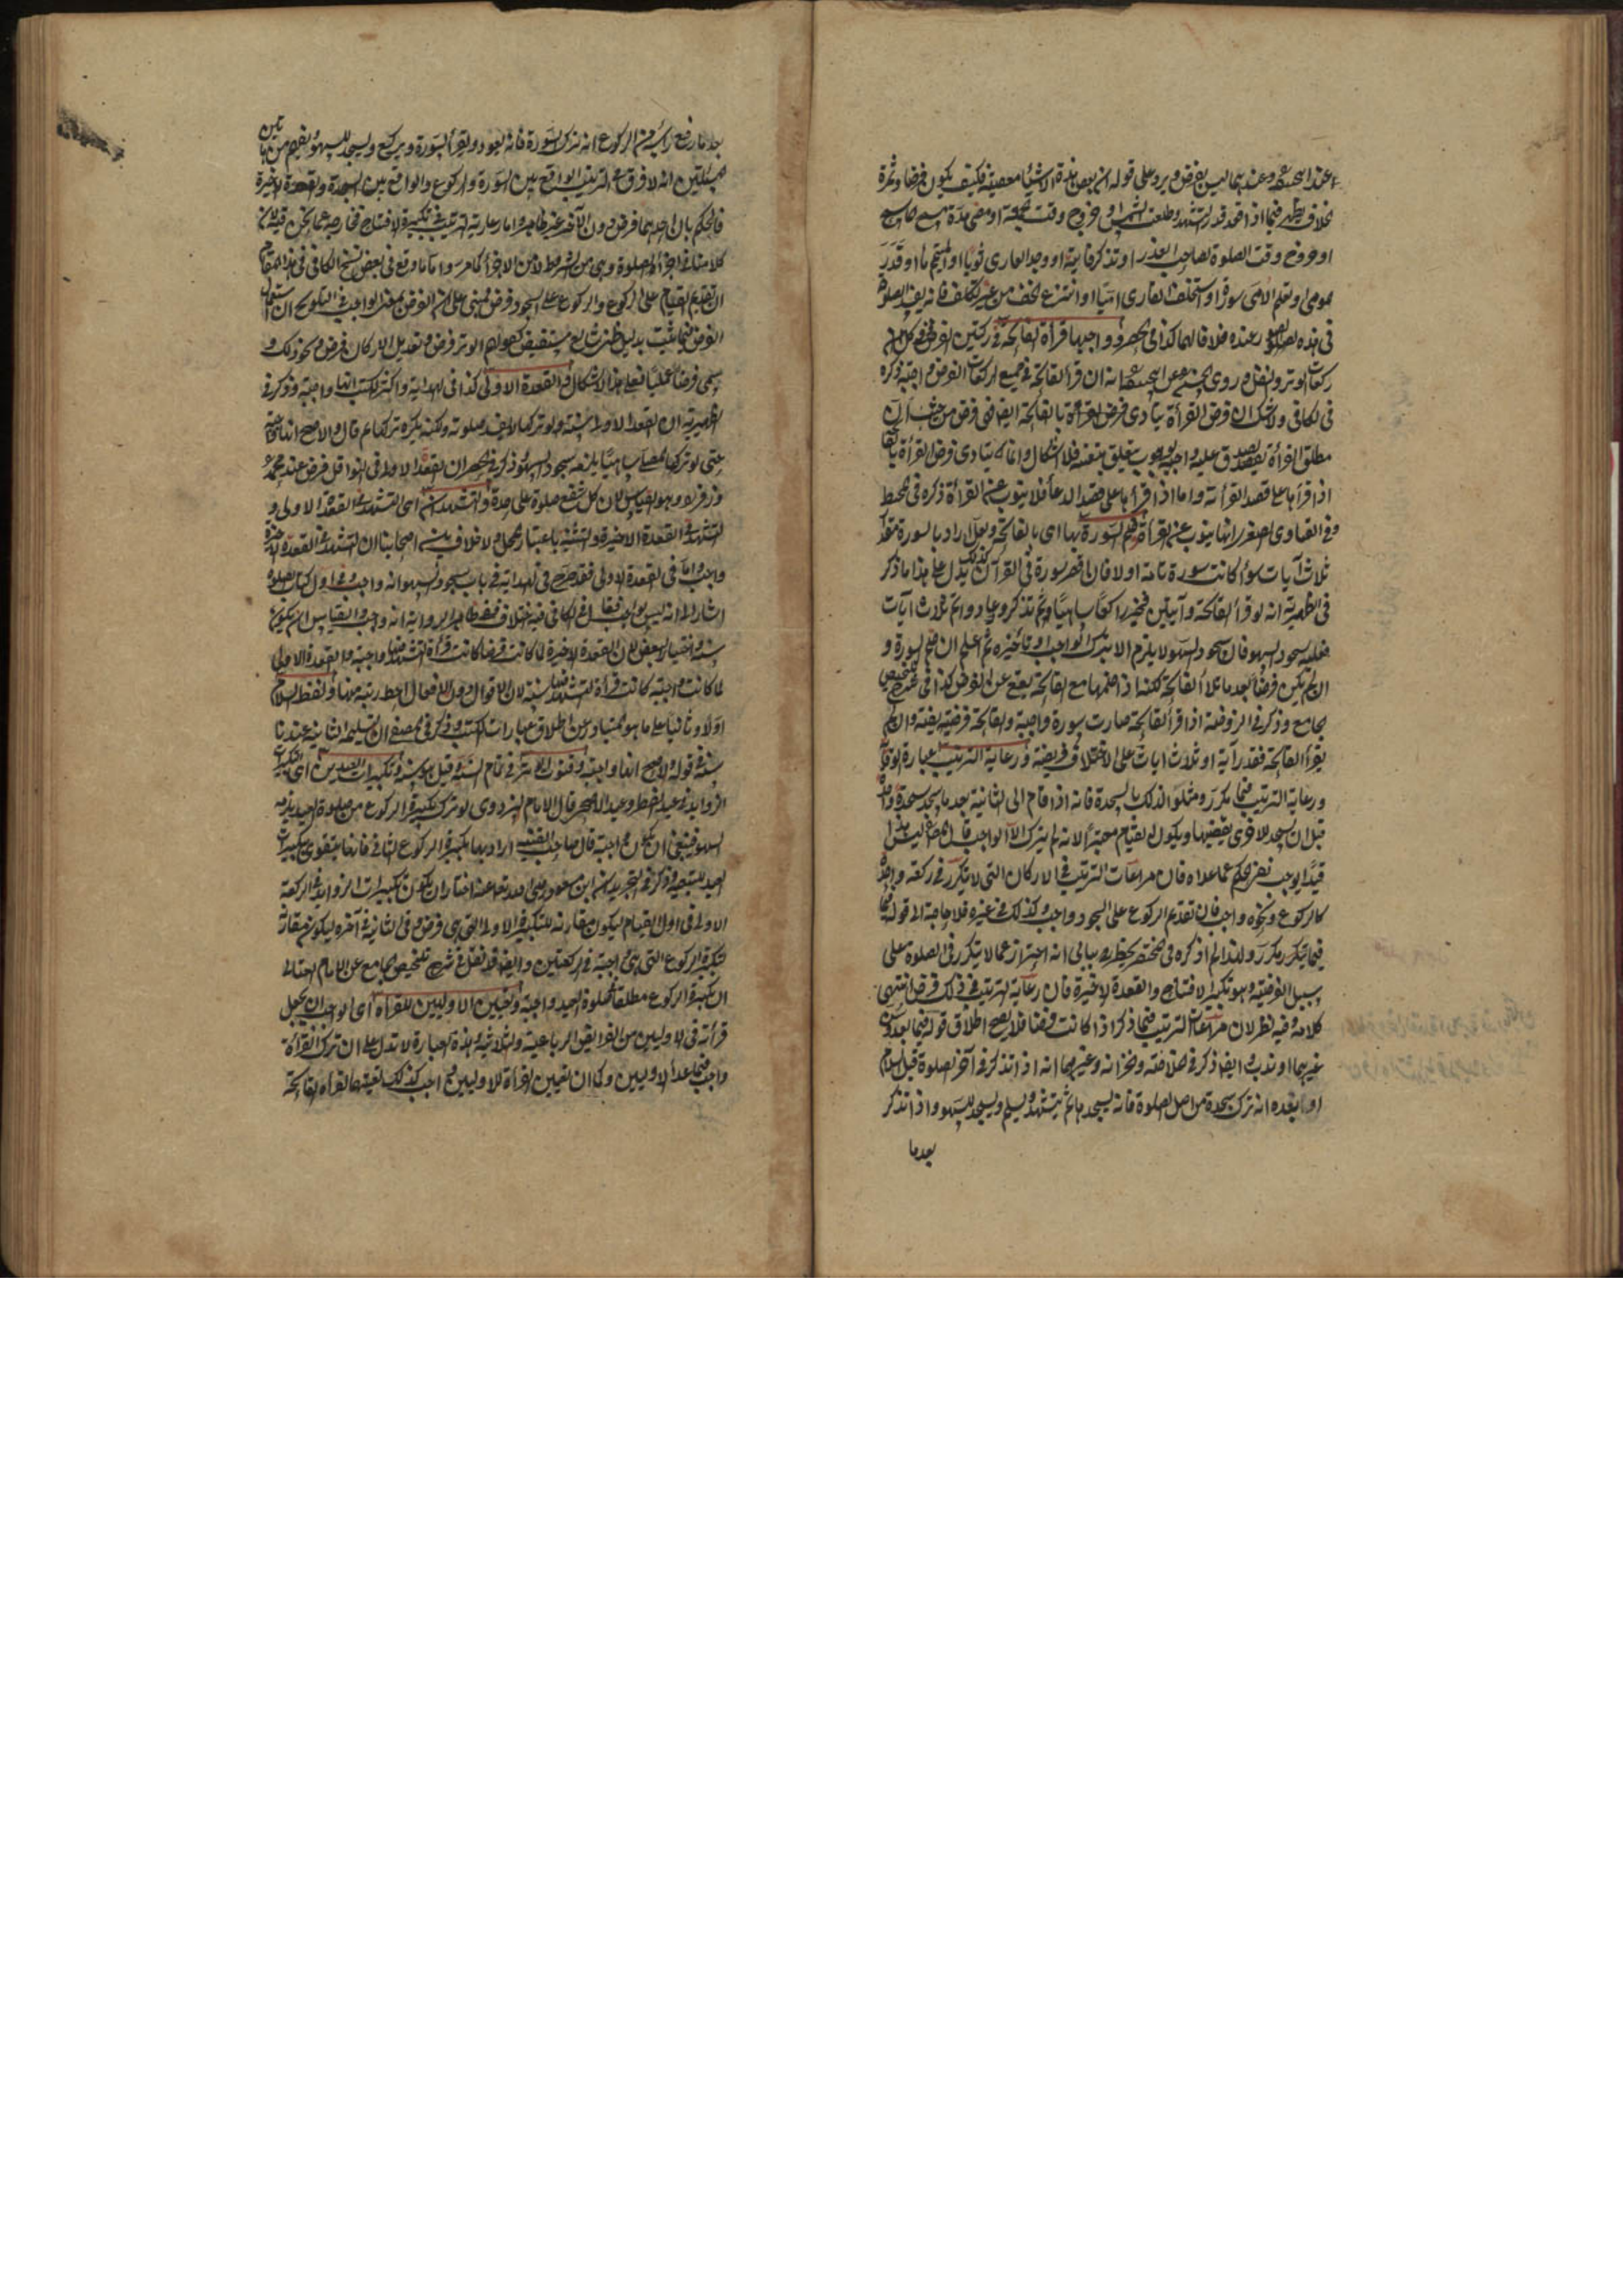 عند ابی حنیفة وعندهما لیس بفرض ویرد علی قوله ان بعض هذه الاشیاء معصیة فکیف یکون فرضا وثمرة
الخلاف یظهر فیما اذا قعد قدر التشهد وطلعت الشمس او خروج وقت الجمعة او مضی مدة مسح
او خروج وقت الصلوة لصاحب العذر او تذکر فایتة او وجد العاری ثوبا او المتیمم ماء او قدر
مومی او تعلم الامی سورة او استخلف القاری امیا او انتزع الخف من غیر تکلف فانه یفسد الصلوة
فی هذه الصور عنده خلافا لهما کذا فی الحصر وواجبها قراءة الفاتحة فی رکعتین الفرض وفی کل
رکعات الوتر والنفل وروی الحسن عن ابی حنیفة انه ان قراءة الفاتحة فی جمیع رکعات الفرض واجبة ذکره
فی الکافی ولا شک ان فرض القراءة یتأدی بالفاتحة ایضا فهی فرض من حیث ان
مطلق القراءة یصدق علیه واجبة لوجوب یتعلق بنفسه فلا اشکال وانما یتأدی فرض القراءة بالفاتحة
اذا قرأها علی قصد القراءة واما اذا قرأها علی قصد الدعاء فلا ینوب عن القراءة ذکره فی المحیط
وفی الفتاوی الصغری انها ینوب عن القراءة وضم السورة بها ای بالفاتحة ولعل اراد بالسورة مقدار
ثلاث آیات سواء کانت سورة تامة او لا فان اقصر سورة فی القرآن کذلک یدل علی هذا ما ذکر
فی الظهیریة انه لو قرأ الفاتحة وآیتین فخر راکعا ساهیا ثم تذکر وعاد واتم ثلاث آیات
فعلیه سجود السهو فان سجود السهو لا یلزم الا بترک الواجب او تأخیره ثم اعلم ان ضم السورة و
ان لم یکن فرضا بعد ما تلا الفاتحة لکنه اذا ضمها مع الفاتحة یقع عن الفرض کذا فی شرح تلخیص
الجامع وذکر فی الروضة اذا قرأ الفاتحة صارت سورة واجبة والفاتحة فرضیة یفیة وان لم
یقرأ الفاتحة فقدر آیة او ثلاث ایات علی الاختلاف فریضة ورعایة الترتیب عبارة الوقایة
ورعایة الترتیب فیما تکرر ومثلوا لذلک بالسجدة فانه اذا قام الی الثانیة بعد ما سجد سجدة واحدة
قبل ان یسجد الاخری یقضیها ویکون القیام معتبرا لانه لم یترک الا الواجب قال لیس هذا
قیدا یوجب نفی الحکم عما عداه فان مراعات الترتیب فی الارکان التی لا یتکرر فی رکعة واحدة
کالرکوع ونحوه واجب فان تقدیم الرکوع علی السجود واجب وکذلک فی غیره فلا حاجة الی قوله فیما
فیما تکرر ولهذا لم اذکره فی المختصر یخطر ببالی انه احتراز عما لا یتکرر فی الصلوة علی
سبیل الفرضیة وهو تکبیر الافتتاح والقعدة الاخیرة فان رعایة الترتیب فی ذلک فرض انتهی
کلامه وفیه نظر لان مراعات الترتیب فیما ذکر اذا کانت فرضا فلا یصح اطلاق قوله فیما بعد
غیرهما او ندب وایضا ذکر فی الخلاصة والخزانة وغیرهما انه اذا تذکر فی آخر الصلوة قبل السلام
او بعده انه ترک سجدة من اصل الصلوة فانه یسجدها ثم یتشهد ویسلم ویسجد للسهو واذا تذکر
بعد ما
بعد ما رفع رأسه من الرکوع انه ترک السورة فانه یعود ویقرأ السورة ویرکع ویسجد للسهو ویفهم من هاتین
المسئلتین انه لا فرق فی الترتیب الواقع بین السورة والرکوع والواقع بین السجدة والقعدة الاخیرة
فالحکم بان احدهما فرض دون الآخر غیر ظاهر واما رعایة الترتیب فی تکبیرة الافتتاح فخارجة عما نحن فیه لان
کلامنا فی اجزاء الصلوة وهی من الشروط لا من الاجزاء کما مر واما ما وقع فی بعض نسخ الکافی فی هذا المقام
ان تقدیم القیام علی الرکوع والرکوع علی السجود فرض فمبنی علی ان الفرض بمعنی الواجب فی التلویح ان استعمال
الفرض فیما ثبت بدلیل ظنی شایع مستفیض کقولهم الوتر فرض وتعدیل الارکان فرض ونحو ذلک و
یسمی فرضا عملیا فعلی هذا لا اشکال والقعدة الاولی کذا فی الهدایة واکثر الکتب انها واجبة وذکر فی
الظهیریة ان القعدة الاولی سنة ولو ترکها لا یفسد صلوته ولکنه یکره ترکها ثم قال والاصح انها واجبة
حتی لو ترکها المصلی ساهیا یلزمه سجود السهو وذکر فی الحصر ان القعدة الاولی فی النوافل فرض عند محمد
وزفر وهو القیاس لان کل شفع صلوة علی حدة والتشهدان ای التشهد فی القعدة الاولی و
التشهد فی القعدة الاخیرة والتثنیة باعتبار المحل ولا خلاف بین اصحابنا ان التشهد فی القعدة الاخیرة
واجب واما فی القعدة الاولی فقد صرح فی الهدایة فی باب سجود السهو انه واجب وفی اول کتاب الصلوة
اشار الی انه لیس بواجب فقال فی الکافی فیه اختلاف فظاهر الروایة انه واجب والقیاس ان یکون
سنة واختیار البعض لان القعدة الاخیرة لما کانت فرضا کانت قراءة التشهد فیها واجبة والقعدة الاولی
لما کانت واجبة کانت قراءة التشهد فیها سنة لان الاقوال دون الافعال احط رتبة منها ولفظ السلام
اولا وثانیا علی ما هو المتبادر من اطلاق عبارات الکتب وذکر فی المصفی ان تسلیمة الثانیة عندنا
سنة فی قوله والاصح انها واجبة وقنوت الوتر فی تمام السنة وقیل هو سنة وتکبیرات العیدین ای التکبیرات
الزواید فی عید الفطر وعید الاضحی قال الامام البزدوی لو ترک تکبیرة الرکوع من صلوة العید یلزمه
السهو فینبغی ان یکون واجبة قال صاحب القنیة اراد بها تکبیرة الرکوع الثانی فانها یتقوی بتکبیرات
العید للتبعیة وذکر فی التجرید ان ابن مسعود رضی الله تعالی عنه اختار ان یکون تکبیرات الزواید فی الرکعة
الاولی فی اول القیام لیکون مقارنة للتکبیرة الاولی التی هی فرض وفی الثانیة فی آخره لیکون مقارنة
لتکبیرة الرکوع التی هی واجبة فی الرکعتین وایضا قد نقل فی شرح تلخیص الجامع عن الامام العتابی
ان تکبیرة الرکوع مطلقا فی صلوة العید واجبة وتعیین الاولیین للقراءة ای الواجب ان یجعل
قراءته فی الاولیین من الفرایض الرباعیة والثلاثیة وهذه العبارة لا تدل علی ان ترک القراءة
واجب فیما عدا الاولیین وکما ان تعیین القراءة للاولیین واجب کذلک تعیینها لقراءة الفاتحة